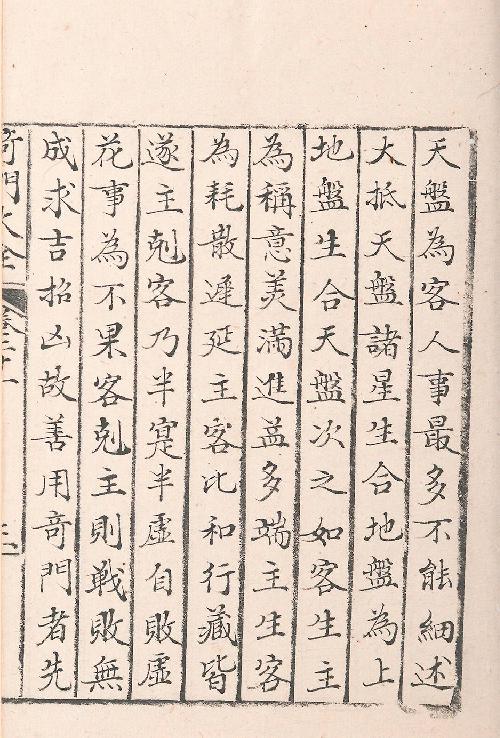 天盤為客人事最多不能細述
大抵天盤諸星生合地盤為上
地盤生合天盤次之如客生主
為稱意美滿進益多端主生客
為耗散遲延主客比和行藏皆
遂主剋客乃半寔半虛自敗虛
花事為不果客剋主則戰敗無
成求吉招凶故善用奇門者先
奇門大全